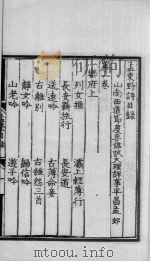 孟東野詩目錄
山南西道節度參謀試大理評事平昌孟郊
第一卷
樂府上
列女操
灞上輕薄行
長安羈旅行
長安道
送遠吟
古薄命妾
古離別
古雜怨三首
靜女吟
歸信吟
山老吟
遊子吟